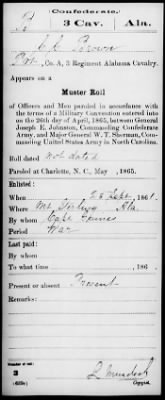 Confederate.
B | 3 Cav. | Ala.
Brown
Pvt, Co. A, 3 Regiment Alabama Cavalry.
Appears on a
Muster Roll
of Officers and Men paroled in accordance with
the terms of a Military Convention entered into
on the 26th day of April, 1865, between General
Joseph E. Johnston, Commanding Confederate
Army, and Major General W. T. Sherman, Com-
manding United States Army in North Carolina.
Roll dated not dated
Paroled at Charlotte, N. C., May , 1865.
Enlisted:
When 25 Sept, 1861.
Where Mt Sterling Ala
By whom Capt
Period War
Last paid:
By whom
To what time , 186 .
Present or absent Present
Remarks:
Number of roll:
3
(639b) Copyist.